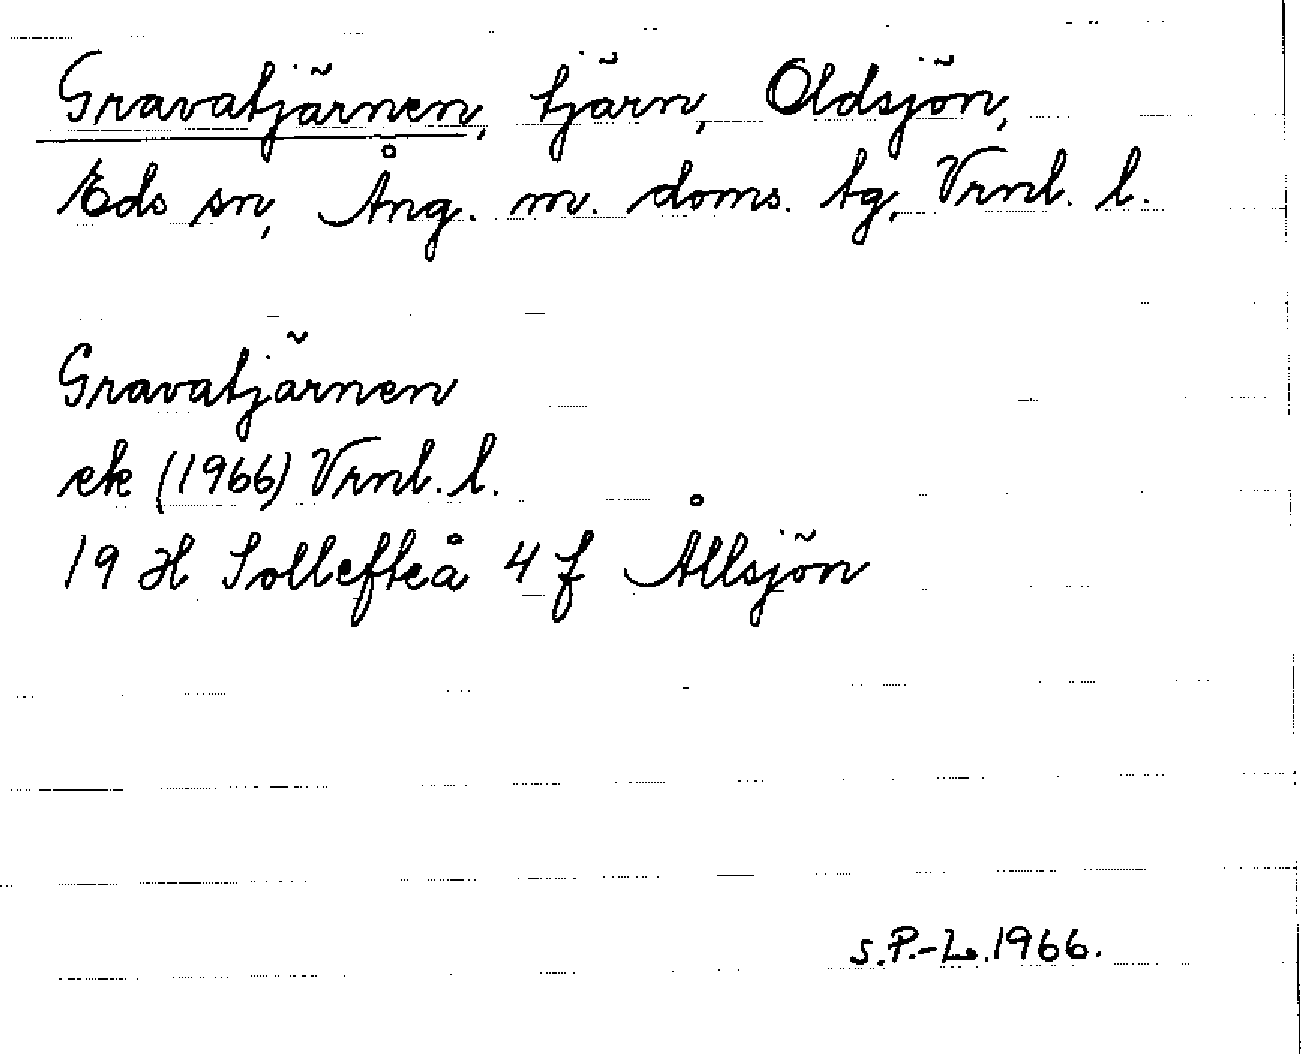 Gravatjärnen, tjärn, Oldsjön,
Eds sn, Ång. m. doms. tg, Vrnl. l.
Gravatjärnen
ek (1966) Vrnl. l.
19 H Sollefteå 4 f Ållsjön
S.P.-L. 1966.